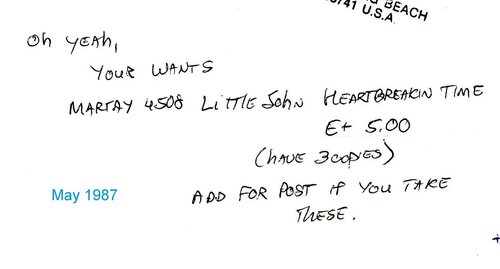 BEACH
741 U.S.A.
Oh YEAH,
YOUR WANTS
MARTAY 4508 LITTLE JOHN HEARTBREAKIN TIME
E+ 5.00
(HAVE 3 COPIES)
May 1987
ADD FOR POST IF YOU TAKE
THESE.